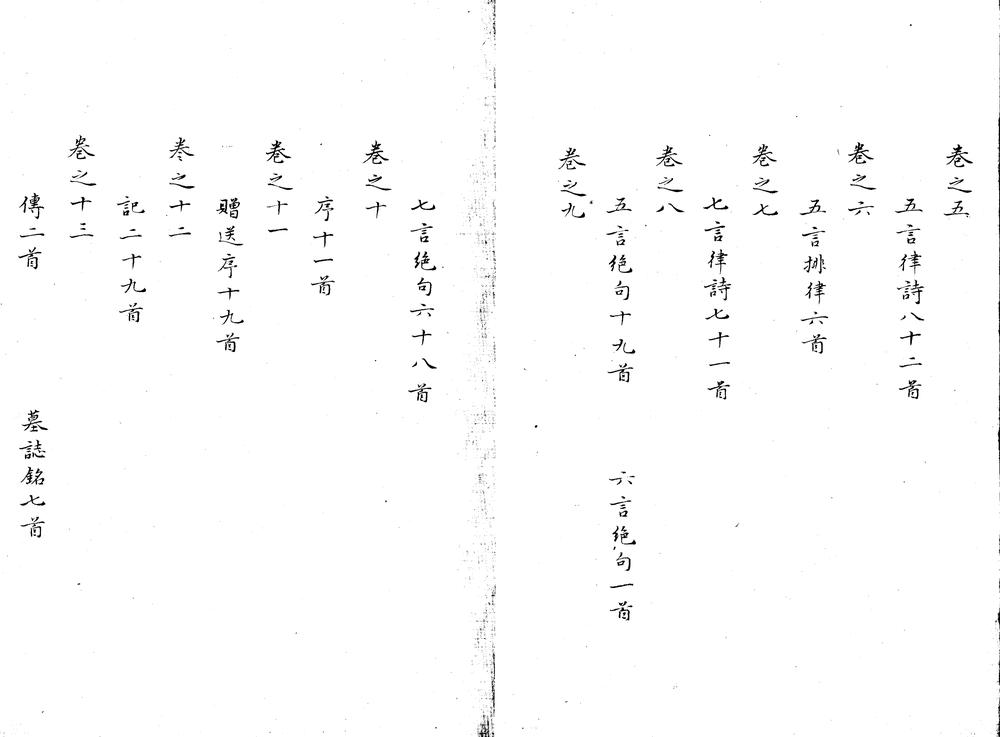 卷之五
五言律詩八十二首
卷之六
五言排律六首
卷之七
七言律詩七十一首
卷之八
五言絶句十九首 六言絶句一首
卷之九
七言絶句六十八首
卷之十
序十一首
卷之十一
贈送序十九首
卷之十二
記二十九首
卷之十三
傳二首 墓誌銘七首